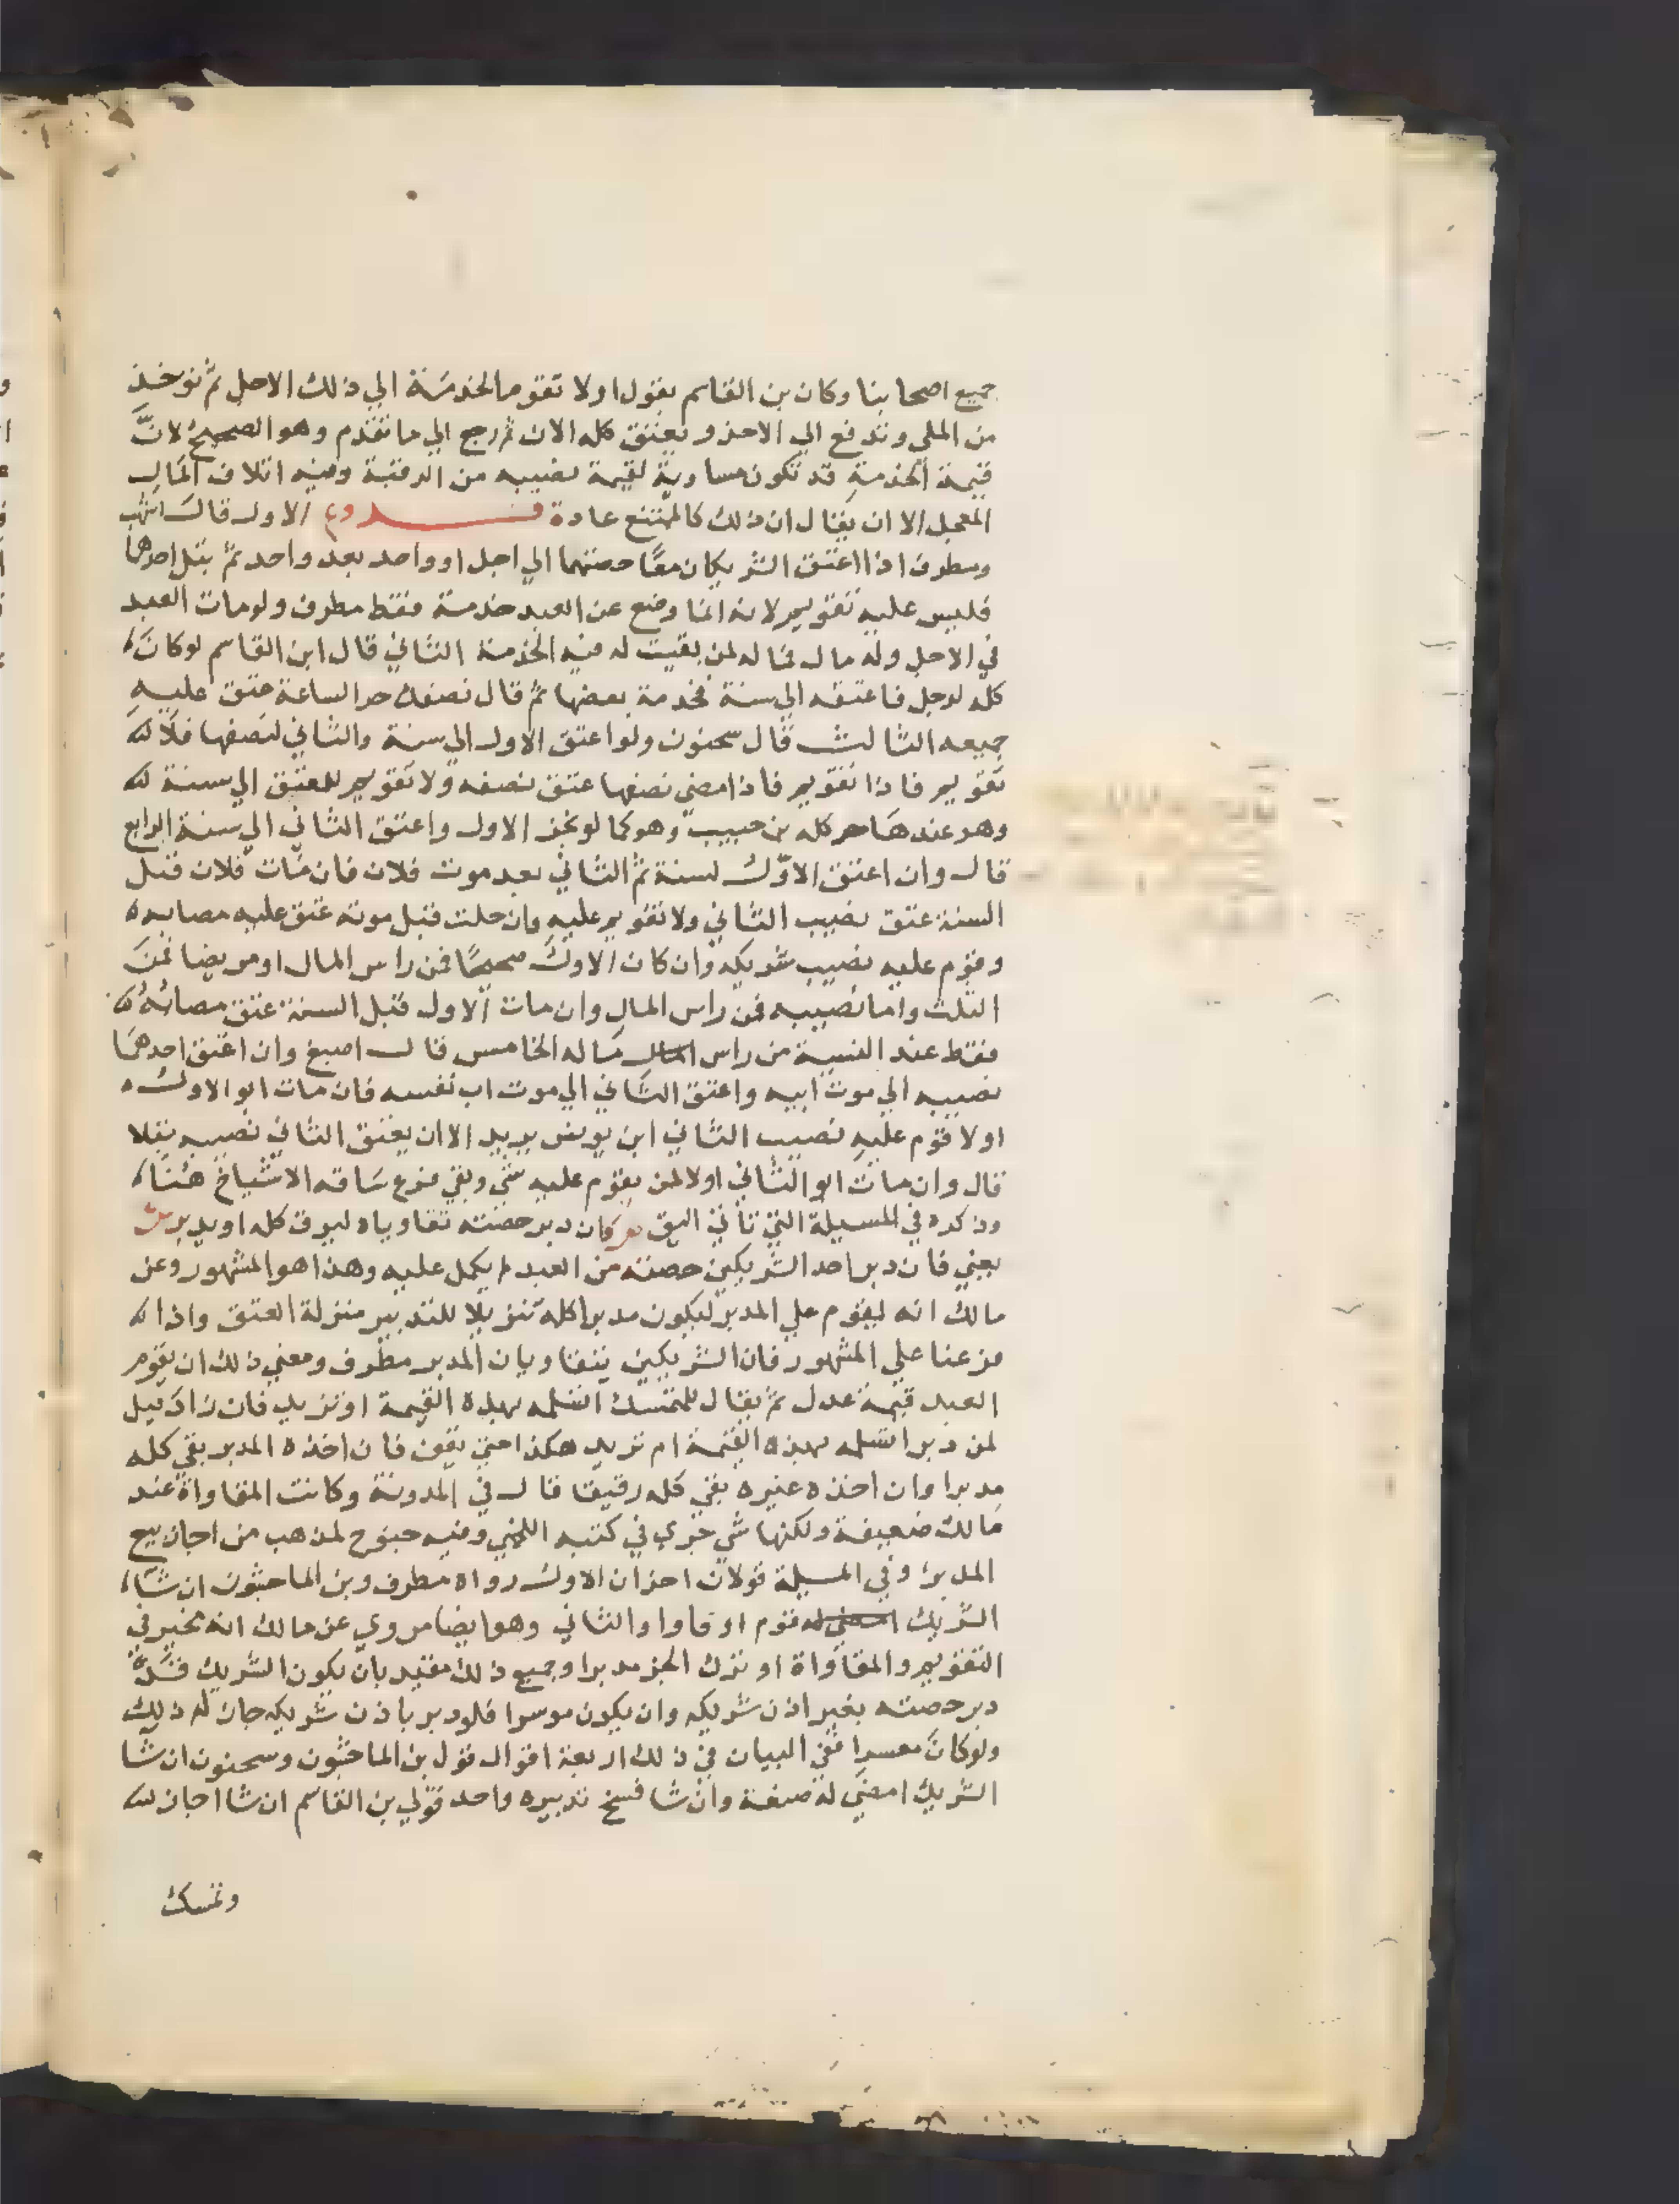 جميع اصحابنا وكان بن القاسم يقول اولا تقوم الخدمة الي ذلك الاجل ثم توخذ
من الملي وتدفع الي الاخذ ويعتق كله الان ثم رجع الي ما تقدم وهو الصحيح لان
قيمة الخدمة قد تكون مساوية لقيمة نصيبه من الرقبة وفيه اتلاف المال
المعجل الا ان يقال ان ذلك كالممتنع عادة فــروع الاول قال اشهب
ومطرف اذا اعتق الشريكان معا حصتهما الي اجل او واحد بعد واحد ثم بتل احدهما
فليس عليه تقويم لانه انما وضع عن العبد خدمة فقط مطرف ولو مات العبد
في الاجل وله مال فماله لمن بقيت له فيه الخدمة الثاني قال ابن القاسم لو كان
كله لرجل فاعتقه الي سنة فخدمة بعضها ثم قال نصفك حر الساعة عتق عليه
جميعه الثالث قال سحنون ولو اعتق الاول الي سنة والثاني لنصفها فلا له
تقويم فاذا تقويم فاذا مضي نصفها عتق نصفه ولا تقويم للمعتق الي سنة له
وهو عندها حر كله بن حبيب وهو كما لو نجز الاول واعتق الثاني الي سنة الرابع
قال وان اعتق الاول لسنة ثم الثاني بعد موت فلان فان مات فلان قبل
السنة عتق نصيب الثاني ولا تقويم عليه وان حلت قبل موته عتق عليه مصابه
وقوم عليه نصيب شريكه وان كان الاول صحيحا فمن راس المال او مريضا فمن
الثلث واما نصيبه فمن راس المال وان مات الاول قبل السنة عتق مصابه
فقط عند السنة من راس ماله الخامس قال اصبغ وان اعتق احدهما
نصيبه الي موت ابيه واعتق الثاني الي موت اب نفسه فان مات ابو الاول
اولا قوم عليه نصيب الثاني ابن يونس يريد الا ان يعتق الثاني نصيبه بتلا
قال وان مات ابو الثاني اولا لمن يقوم عليه شي وبقي فرع ساقه الاشياخ هنا
وذكره في المسيلة التي تاتي اليق فان دبر حصته تقاوياه ليرق كله او يدبر ش
يعني فان دبر احد الشريكين حصته من العبد لم يكمل عليه وهذا هو المشهور وعن
مالك انه ليقوم علي المدبر ليكون مدبرا كله تنزيلا للتدبير منزلة العتق واذا
فرعنا علي المشهور فان الشريكين يتقاويان المدبر مطرف ومعني ذلك ان يقوم
العبد قيمة عدل ثم يقال للمتمسك اتسلمه بهذه القيمة او تزيد فان زاد قيل
لمن دبر اتسلمه بهذه القيمة ام تزيد هكذا حتي يقف فان اخذه المدبر بقي كله
مدبرا وان اخذه غيره بقي كله رقيقا قال في المدونة وكانت المقاواة عند
مالك ضعيفة ولكنها شي جري في كتبه اللخمي وفيه جنوح لمذهب من اجاز بيع
المدبر وفي المسيلة قولان اخران الاول رواه مطرف وبن الماجشون ان شا
الشريك قوم او قاوا والثاني وهو ايضا مروي عن مالك انه مخير في
التقويم والمقاواة او ترك الجز مدبرا وجميع ذلك مقيد بان يكون الشريك قد
دبر حصته بغير اذن شريكه وان يكون موسرا فلو دبر باذن شريكه جاز له ذلك
ولو كان معسرا ففي البيان في ذلك اربعة اقوال قول بن الماجشون وسحنون ان شا
الشريك امضي له صنعه وان شا فسخ تدبيره واحد قولي بن القاسم ان شا اجاز له
وتمسك